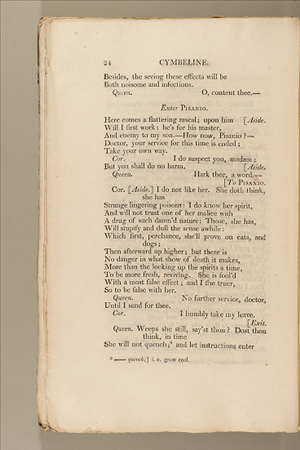 24 CYMBELINE.
Besides, the seeing these effects will be
Both noisome and infectious.
Queen. O, content thee.—
Enter PISANIO.
Here comes a flattering rascal; upon him [Aside.
Will I first work: he's for his master,
And enemy to my son.—How now, Pisanio?—
Doctor, your service for this time is ended;
Take your own way.
Cor. I do suspect you, madam;
But you shall do no harm. [Aside.
Queen. Hark thee, a word.—
[To PISANIO.
Cor. [Aside.] I do not like her. She doth think,
she has
Strange lingering poisons: I do know her spirit,
And will not trust one of her malice with
A drug of such damn'd nature: Those, she has,
Will stupify and dull the sense awhile:
Which first, perchance, she'll prove on cats, and
dogs;
Then afterward up higher; but there is
No danger in what show of death it makes,
More than the locking up the spirits a time,
To be more fresh, reviving. She is fool'd
With a most false effect; and I the truer,
So to be false with her.
Queen. No further service, doctor,
Until I send for thee.
Cor. I humbly take my leave.
[Exit.
Queen. Weeps she still, say'st thou? Dost thou
think, in time
She will not quench;* and let instructions enter
*—— quench;] i. e. grow cool.